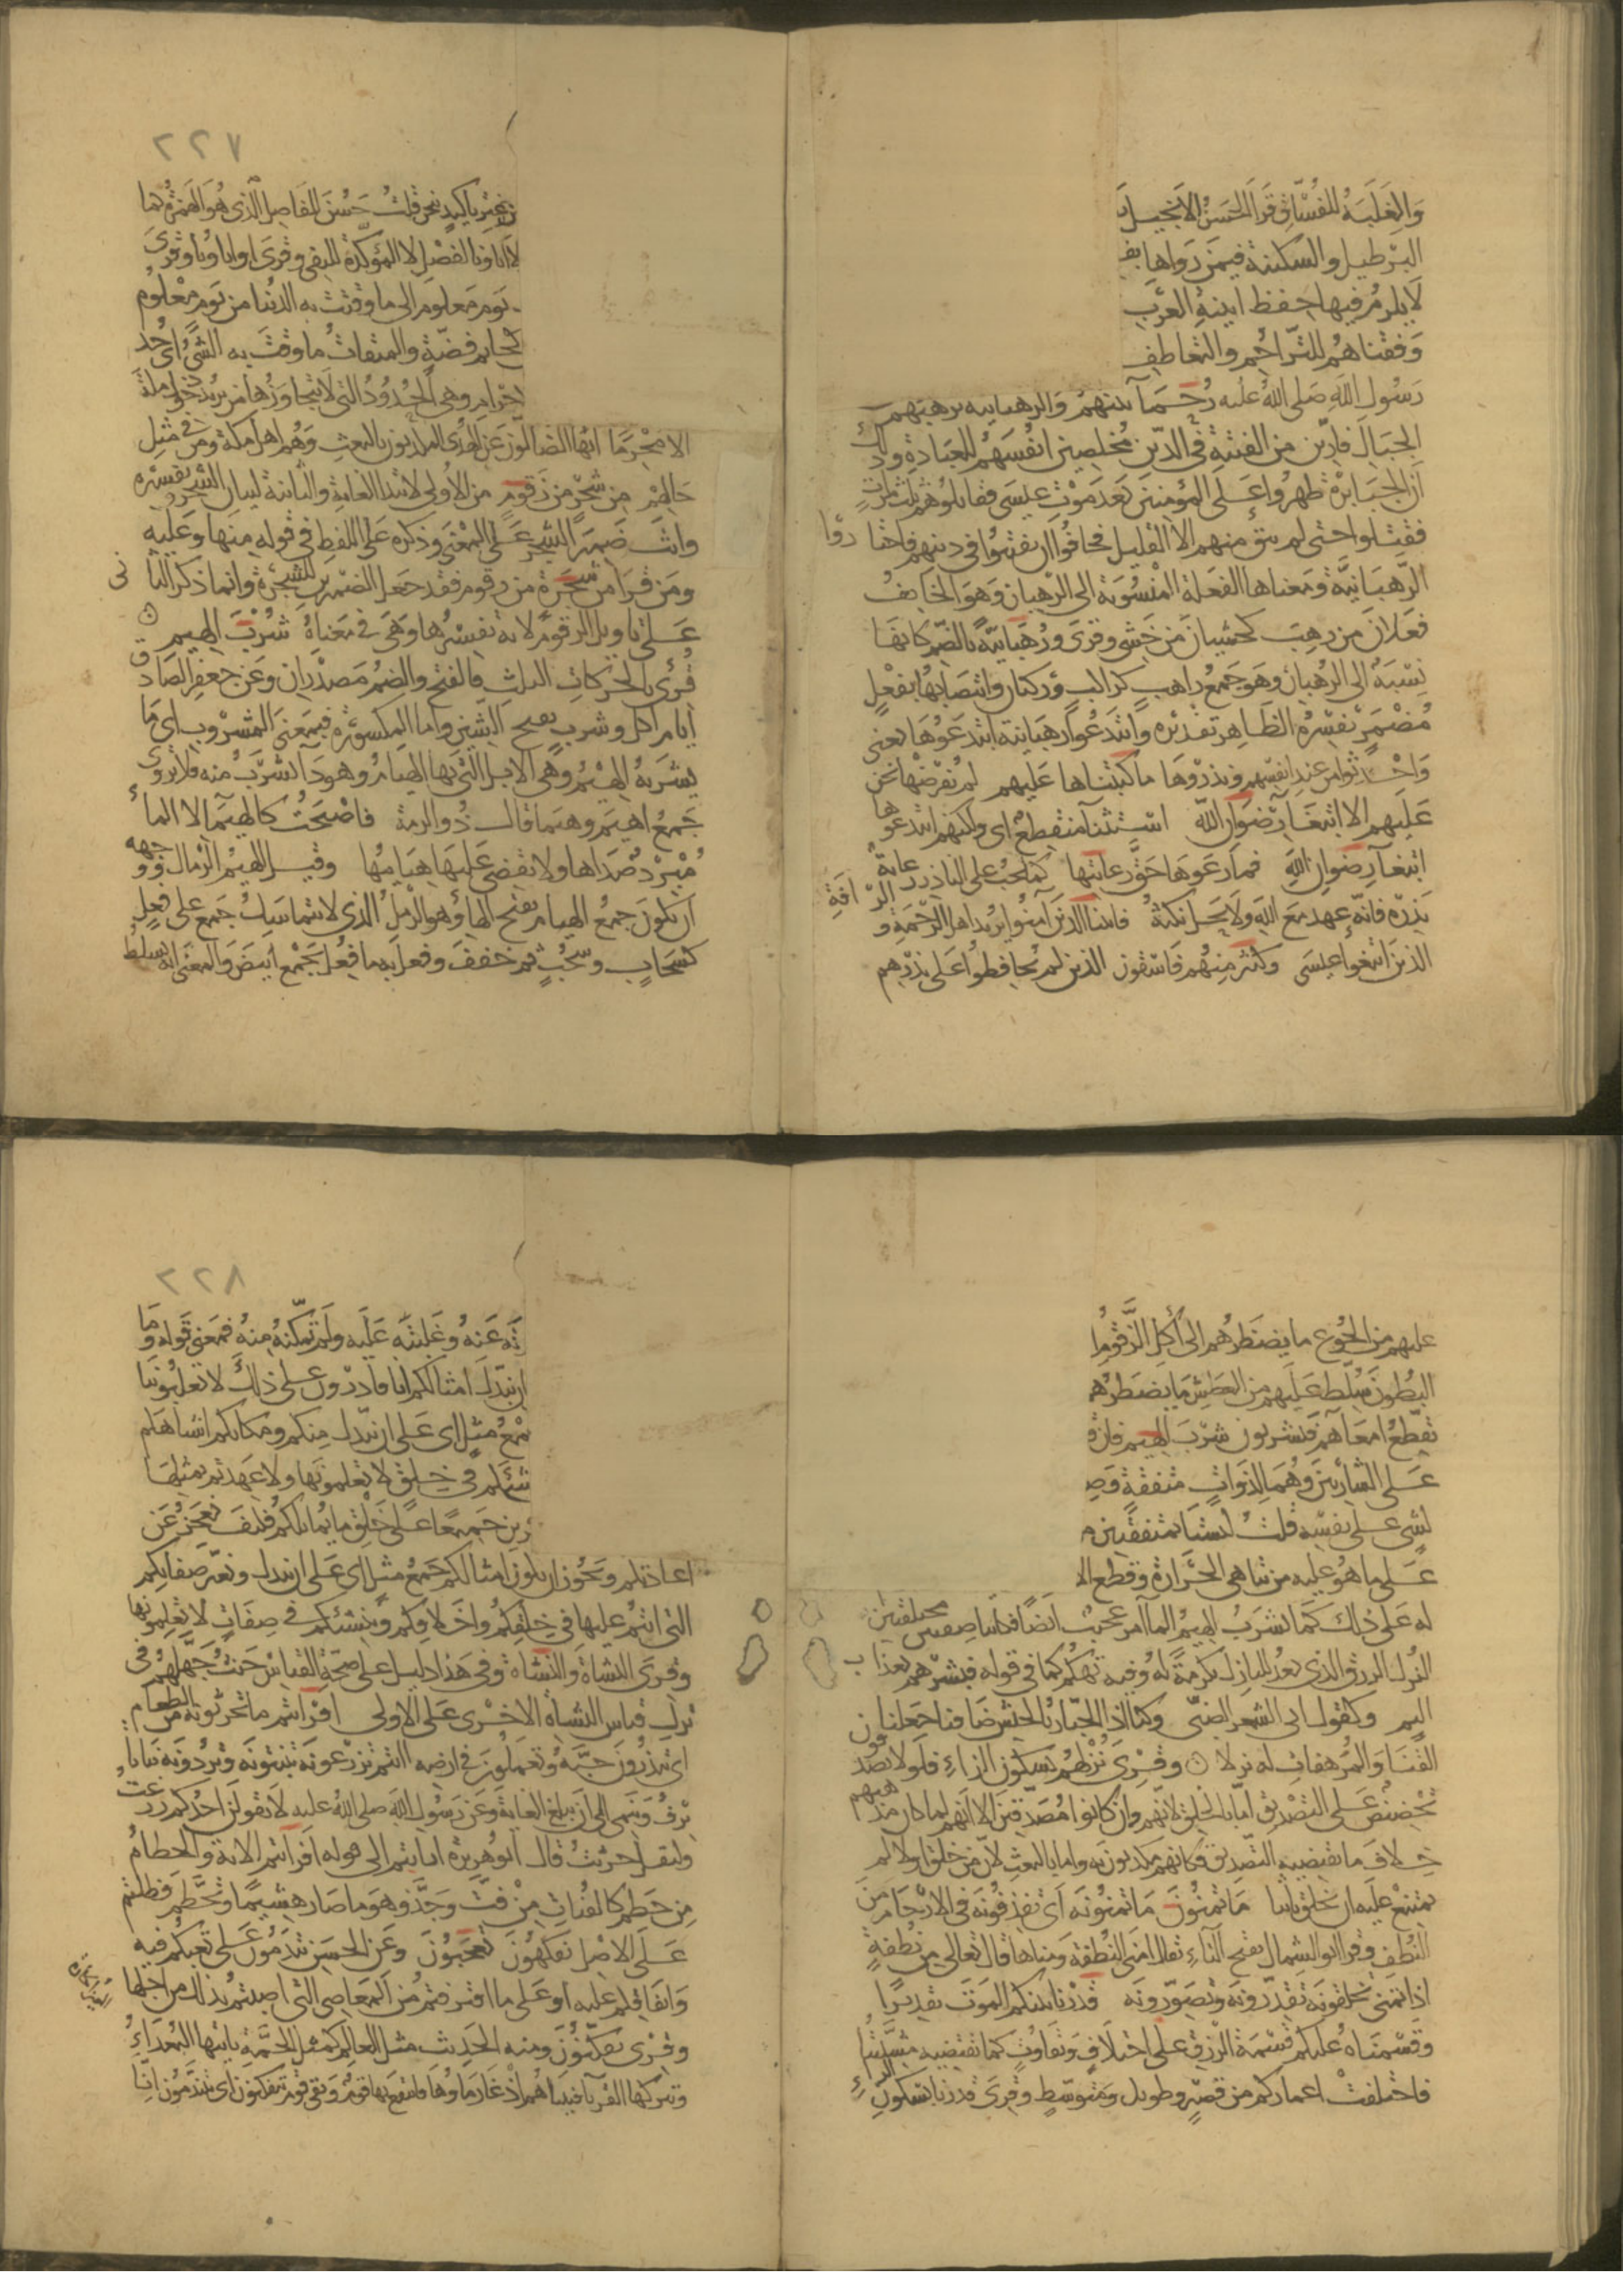 والغلبة للفساق قرا الحسن الانجيل
البرطيل والسكينة فيمن رواها بفـ
لا يلزم فيها حفظ ابنية العرب
وفقناهم للتراحم والتعاطف
رسول الله صلى الله عليه رحماء بينهم والرهبانيه ترهبهم
الجبال فارين من الفتنة في الدين مخلصين انفسهم للعبادة وذلك
ان الجبابرة ظهروا على المؤمنين بعد موت عيسى فقاتلوهم ثلث مرات
فقتلوا حتى لم يبق منهم الا القليل فخافوا ان يفتنوا في دينهم فاختاروا
الرهبانية ومعناها الفعلة المنسوبة الى الرهبان وهو الخائف
فعلان من رهب كخشيان من خشي وقرى ورهبانية بالضم كانها
نسبة الى الرهبان وهو جمع راهب كراكب وركبان وانتصابها بفعل
مضمر يفسره الظاهر تقديره وابتدعوا رهبانية ابتدعوها يعني
واحدثوها من عند انفسهم ونذروها ما كتبناها عليهم لم نفرضها نحن
عليهم الا ابتغاء رضوان الله استثناء منقطع اى ولكنهم ابتدعوها
ابتغاء رضوان الله فما رعوها حق رعايتها كما يجب على الناذر رعاية
نذره فانه عهد مع الله ولا يحل نكثه فاتينا الذين آمنوا يريد اهل الرحمة والرأفة
الذين اتبعوا عيسى وكثير منهم فاسقون الذين لم يحافظوا على نذرهم
٢٢٧
من غير تأكيد بنحن قلت حسن للفاصل الذى هو الهمزة كما
لا آباونا لفصل لا المؤكدة للنفي وقرى اواباونا وقرى
يوم معلوم الى ما وقتت به الدنيا من يوم معلوم
كخاتم فضة والميقات ما وقت به الشئ اى حد
احرام وهي الحدود التي لا يتجاوزها من يريد دخول مكة
الا محرما ايها الضالون عن الهدى المكذبون بالبعث وهم اهل مكة ومن في مثل
حالهم من شجر من زقوم من الاولى لابتدا الغاية والثانية لبيان الشجر وتفسيره
وانث ضمير الشجر على المعنى وذكره على اللفظ في قوله منها وعليه
ومن قرا من شجرة من زقوم فقد جعل الضميرين للشجرة وانما ذكر الثانى
على تاويل الزقوم لانه تفسيرها وهي في معناه شرب الهيم
قرئ بالحركات الثلث فالفتح والضم مصدران وعن جعفر الصادق
ايام اكل وشرب بفتح الشين واما المكسورة فبمعنى المشروب اى ما
يشربه الهيم وهي الابل التي بها الهيام وهو دآ تشرب منه فلا تروى
جمع اهيم وهيما قال ذو الرمة فاصبحت كالهيمآ لا الماء
مبرد صداها ولا يقضى عليها هيامها وقيل الهيم الرمال ووجهه
ان يكون جمع الهيام بفتح الهاء وهو الرمل الذى لا يتماسك جمع على فعل
كسحاب وسحب ثم خفف وفعل به ما فعل بجمع ابيض والمعنى انه يسلط
عليهم من الجوع ما يضطرهم الى أكل الزقوم
البطون سلط عليهم من العطش ما يضطرهم
تقطع امعآهم فيشربون شرب الهيم فان ق
على الشاربين وهما لذوات متفقة وصـ
لشي على نفسه قلت ليستا بمتفقتين م
على ما هو عليه من تناهى الحرارة وقطع الا
له على ذلك كما تشرب الهيم المآ امر عجيب ايضا فكانتا صفتين مختلفتين
النزل الرزق الذى يعد للنازل تكرمة له وفيه تهكم كما في قوله فبشرهم بعذاب
اليم وكقول ابى الشعر الضبي وكنا اذا الجبار بالجيش ضافنا جعلنا
القنا والمرهفات له نزلا وقرى نزلهم بسكون الزاء فلولا تصدقون
تحضيض على التصديق اما بالخلق لانهم وان كانوا مصدقين الا انهم لما كان مذهبهم
خلاف ما يقتضيه التصديق فكانهم مكذبون به واما بالبعث لان من خلق اولا لم
يمتنع عليه ان يخلق ثانيا ما تمنون ما تمنونه اى تقذفونه في الارحام من
النطف وقرا ابو السمال بفتح التاء يقال امنى النطفة ومناها قال تعالى من نطفة
اذا تمنى تخلقونه تقدرونه وتصورونه قدرنا بينكم الموت تقديرا
وقسمناه عليكم قسمة الرزق على اختلاف وتفاوت كما تقتضيه مشيتنا
فاختلفت اعماركم من قصير وطويل ومتوسط وقرى قدرنا بسكون
٢٢٨
عنه وغلبته عليه ولم تمكنه منه فمعنى قوله وما
ان نبدل امثالكم انا قادرون على ذلك لا تغلبوننا
جمع مثل اى على ان نبدل منكم ومكانكم اشباهكم
ننشئكم في خلق لا تعلمونها ولا عهدتم بمثلها
رين جميعا على خلق ما يماثلكم فكيف نعجز عن
اعادتكم ويجوز ان يكون امثالكم جمع مثل اى على ان نبدل ونغير صفاتكم
التي انتم عليها في خلقكم واخلاقكم وننشئكم في صفات لا تعلمونها
وقرى النشاة والنشاة وفي هذا دليل على صحة القياس حيث جهلهم فى
ترك قياس النشاه الاخرى على الاولى افرايتم ما تحرثونه من الطعام
اى تبذرون حبه وتعملون في ارضه ءانتم تزرعونه تنبتونه وتردونه نباتا
يرف وينمى الى ان يبلغ الغاية وعن رسول الله صلى الله عليه لا يقولن احدكم زرعت
وليقل حرثت قال ابو هريره ارايتم الى قوله افرايتم الاية والحطام
من حطم كالفتات من فت وجذ وهو ما صار هشيما وتحطم فظلتم
على الاصل تفكهون تعجبون وعن الحسن تندمون على تعبكم فيه
وانفاقكم عليه او على ما اقترفتم من المعاصي التي اصبتم بذلك من اجلها
وقرى تفكنون ومنه الحديث مثل العالم كمثل الحمة ياتيها البعداء
ويتركها القرباء فبينا هم اذ غار ماوها فانتفع بها قوم وبقي قوم يتفكنون اى يتندمون انا